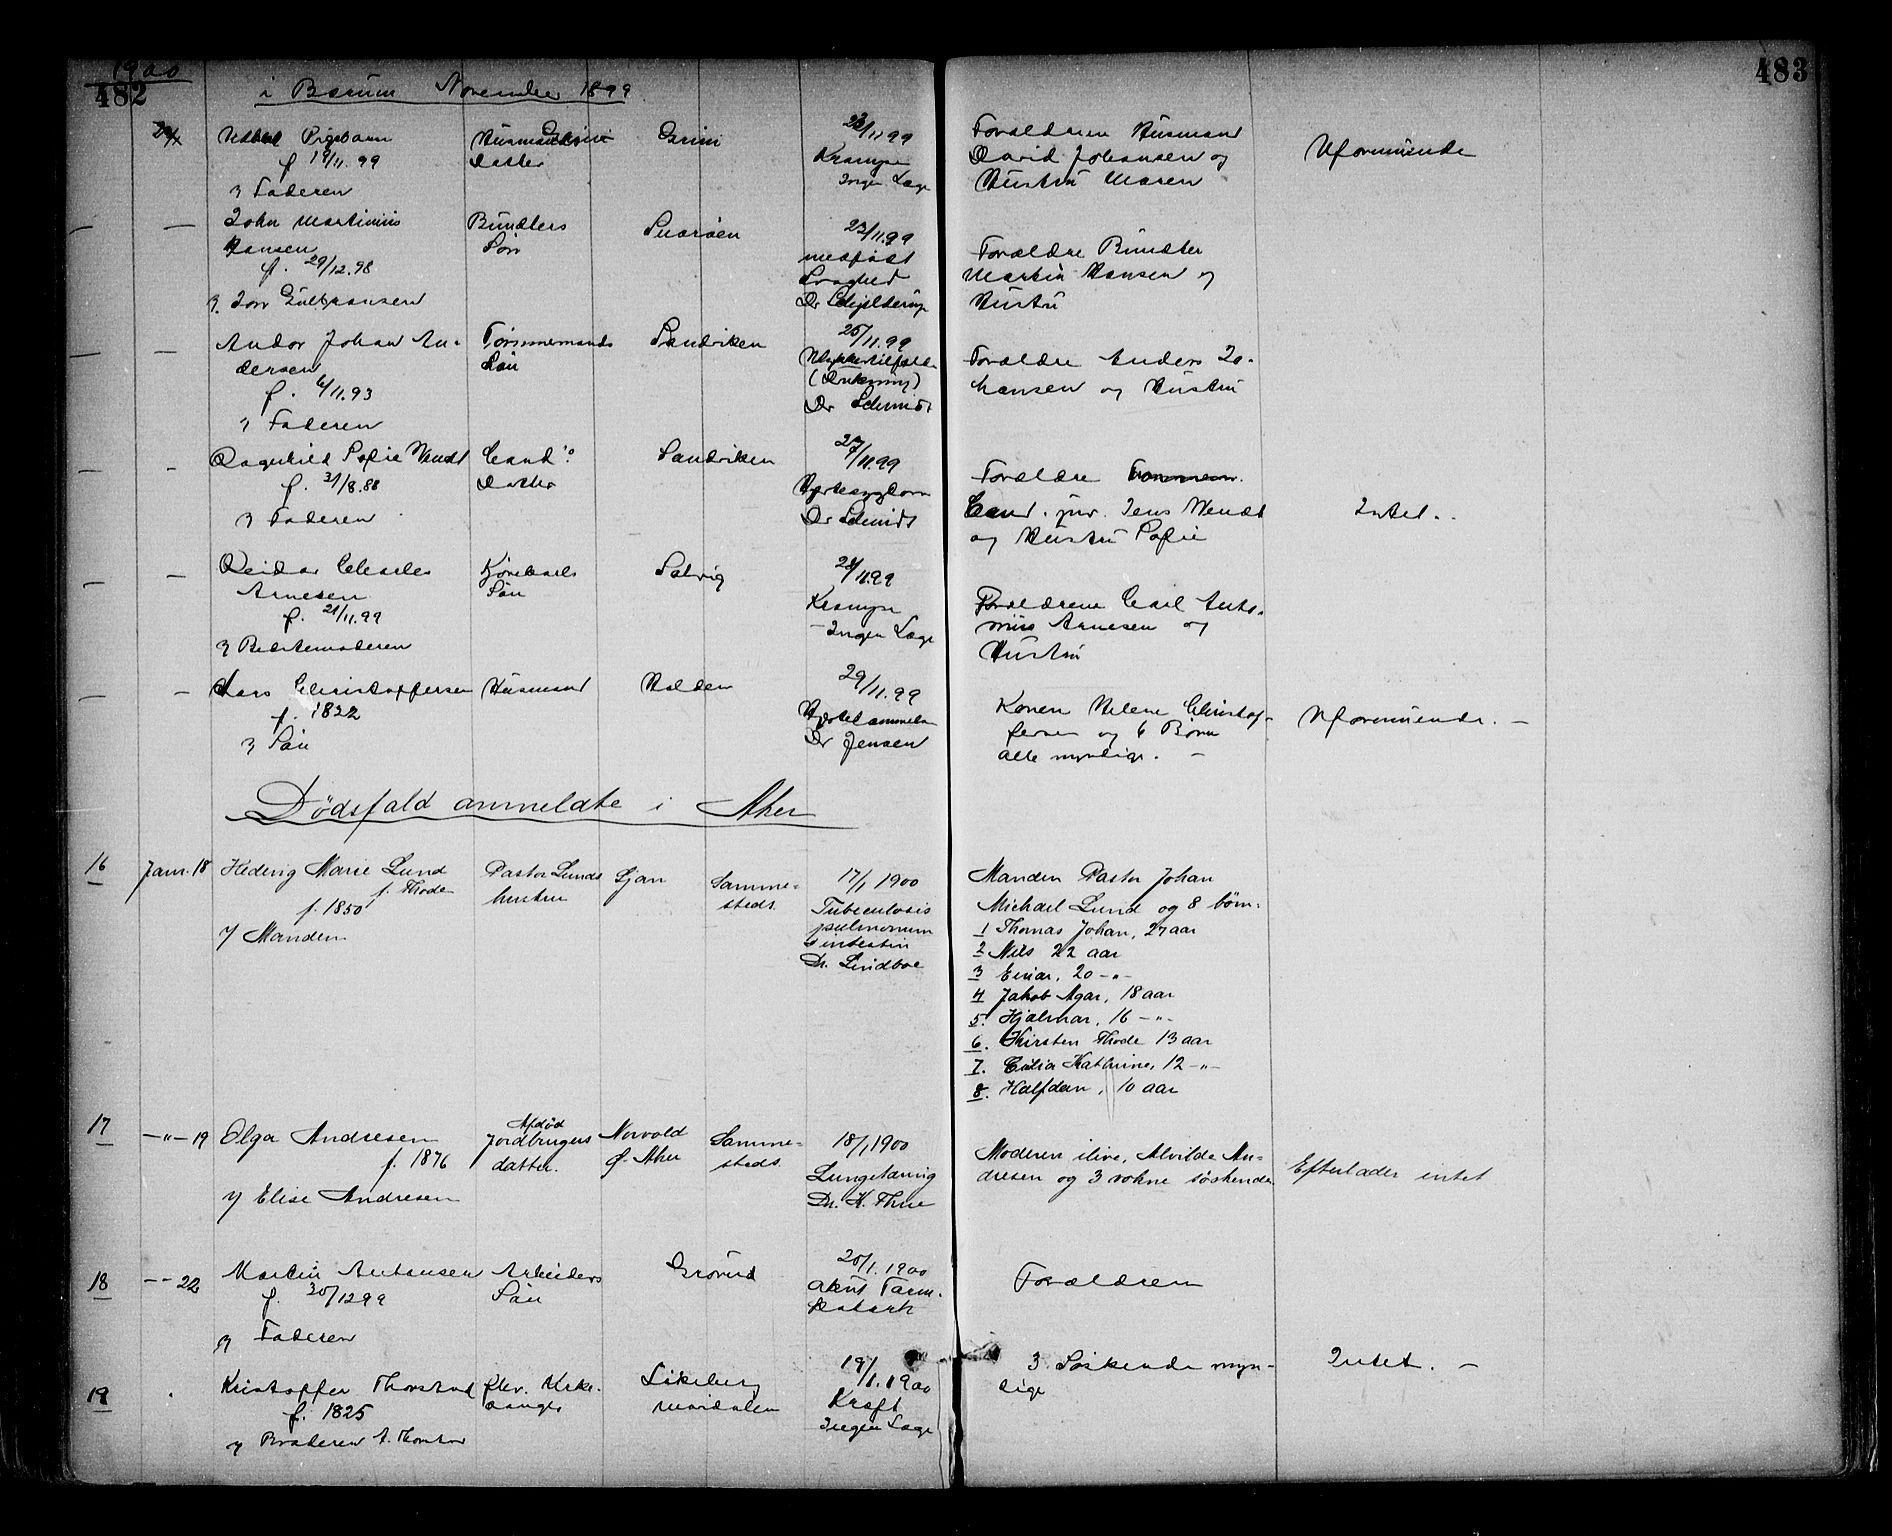 1900
482
483
i Bærum November 1899
Udøbt Pigebarn
f 19/11.99
Datter
Grini
23/11 99
Krampe
Ingen Læge
Forældrene Husmand
David Johansen og
Hustru Maren
Uformuende
Faderen
John Martinius
Hansen
f. 29/12.98
Søn
Snarøen
23/11.99
medfødt
Svaghed
Dr
Forældre
Martin Hansen og
Hustru
Andor Johan An-
dersen
f. 6/11.93
Faderen
Søn
Sandviken
25/11.99
(Drukning)
Dr Schmidt
Forældre Anders Jo-
hansen og Hustru
Dagnhild Sofie Wendt
f. 31/8.88
Faderen
Cand:
Datter
Sandviken
27/11.99
Hjertesygdom
Dr Schmidt
Forældre
Cand. jur. Jens Wendt
og Hustru Sofie
Intet.
Reidar Charles
Arnesen
f. 21/11.99
Bedstemoderen
Søn
Solvig
28/11.99
Krampe
- Ingen Læge
Forældrene Carl Anto-
nius Arnesen og
Hustru
Lars Christoffersen
f. 1822
Søn
Husmand
Halden
29/11.99
Hjertelammelse
Dr Jensen
Konen Helene Christof-
fersen og 6 Børn
alle myndige. -
Uformuende. -
Dødsfald anmeldte i Aker
16
Janr. 18
Hedevig Marie Lund
f. Thode
f. 1850
Manden
Pastor Lunds
hustru
Ljan
Samme-
steds.
17/1 1900
Tuberculosis
pulmonum
& intestin
Dr. Lindboe
Manden Pastor Johan
Michael Lund og 8 børn.
1 Thomas Johan, 27 aar
2 Nils 22 aar
3 Einar, 20 -"-
4 Jakob Agar, 18 aar
5. Hjalmar, 16 -"-
6. Kirsten Thode 13 aar
7. Kathrine, 12 -"-
8. Halfdan, 10 aar
17
-"- 19
Olga Andresen
f. 1876
Elise Andresen
Afdød
Jordbrugers
datter.
Norvold
Ø. Aker
Samme-
steds
18/1 1900
Lungetæring
Dr. K. Thue
Moderen ilive, Alvilde An-
dresen og 3 voksne søskende
Efterlader intet
18
-- 22
Martin Antonsen
f. 30/12 99
Faderen
Arbeiders
Søn
Grorud
20/1.1900
Akut Tarm-
katarh
Forældrene
19
Kristoffer Thorstad
f. 1825
Broderen A. Thorstad
Kirke-
sanger
Maridalen
19/1.1900
Kræft
Ingen Læge
3 Søskende myn-
dige
Intet. -